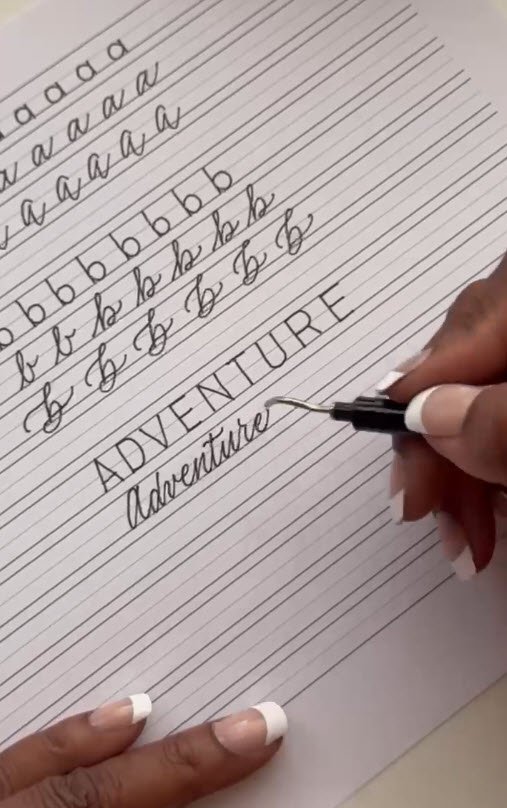 a a a a
a a a a a
a a a a a
b b b b b b b b
b b b b b b b
b b b b b b
ADVENTURE
Adventure